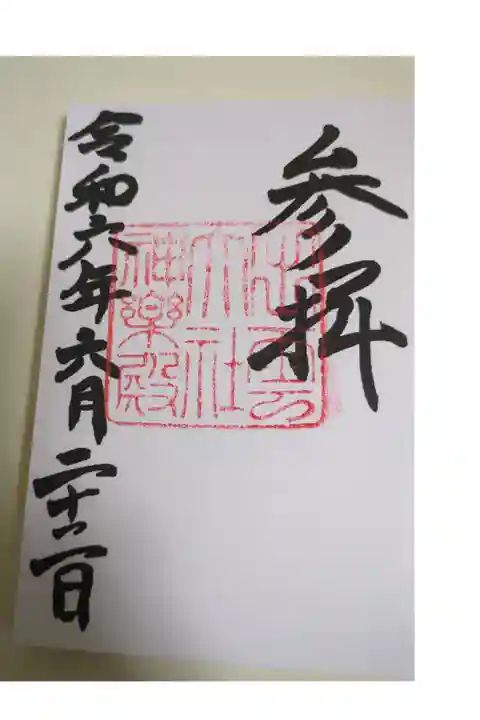 参拝
出雲
大社
神樂殿
令和六年六月二十日